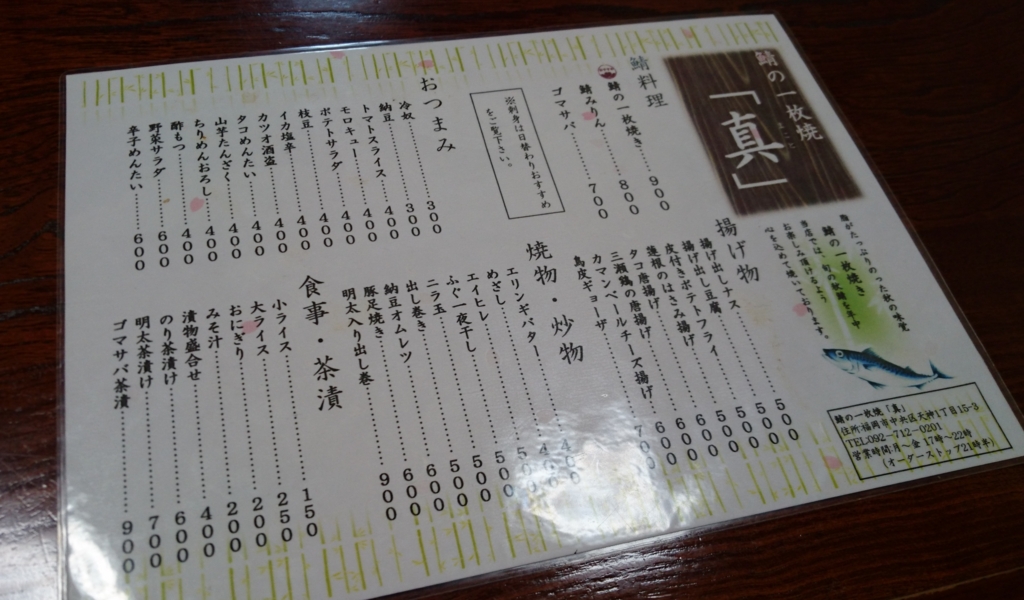 鯖の一枚焼
「真」
まこと
鯖がたっぷりのった秋の味覚
鯖の一枚焼き
心を込めて焼いております
鯖料理
鯖の一枚焼き 900
鯖みりん 800
ゴマサバ 700
※刺身は日替わりおすすめ
をご覧下さい。
おつまみ
冷奴 300
納豆 300
トマトスライス 400
モロキュー 400
ポテトサラダ 400
枝豆 400
イカ塩辛 400
カツオ酒盗 400
タコめんたい 400
山芋たんざく 400
ちりめんおろし 400
酢もつ 400
野菜サラダ 600
辛子めんたい 600
揚げ物
揚げ出しナス 500
揚げ出し豆腐 500
皮付きポテトフライ 500
蓮根のはさみ揚げ 600
タコ唐揚げ 600
三瀬鶏の唐揚げ 600
カマンベールチーズ揚げ 700
鳥皮ギョーザ
焼物・炒物
エリンギバター
めざし 500
エイヒレ 500
ふぐ一夜干し 500
ニラ玉 500
出し巻き 600
納豆オムレツ 600
豚足焼き
明太入り出し巻 900
食事・茶漬
小ライス 150
大ライス 250
おにぎり 200
みそ汁 200
漬物盛合せ 400
のり茶漬け 600
明太茶漬け 700
ゴマサバ茶漬 900
鯖の一枚焼「真」
住所:福岡市中央区天神1丁目15-3
TEL092-712-0201
営業時間:月〜金 17時〜22時
(オーダーストップ21時半)